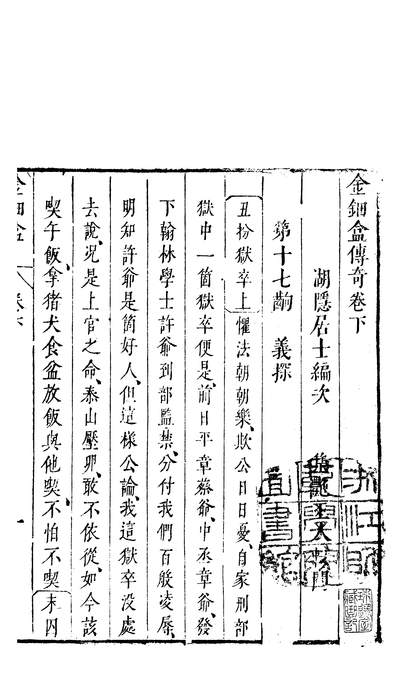 金鈿盒傳奇卷下
湖隱居士編次
第十七齣 義探
丑扮獄卒上懼法朝朝樂欺公日日憂自家刑部
獄中一箇獄卒便是前日平章蔡爺中丞章爺發
下翰林學士許爺到部監禁分付我們百般凌辱
明知許爺是箇好人但這樣公論我這獄卒没處
去說况是上官之命泰山壓卵敢不依從如今該
喫午飯拿猪犬食盆放飯與他喫不怕不喫末囚
金鈿盒 卷下 一